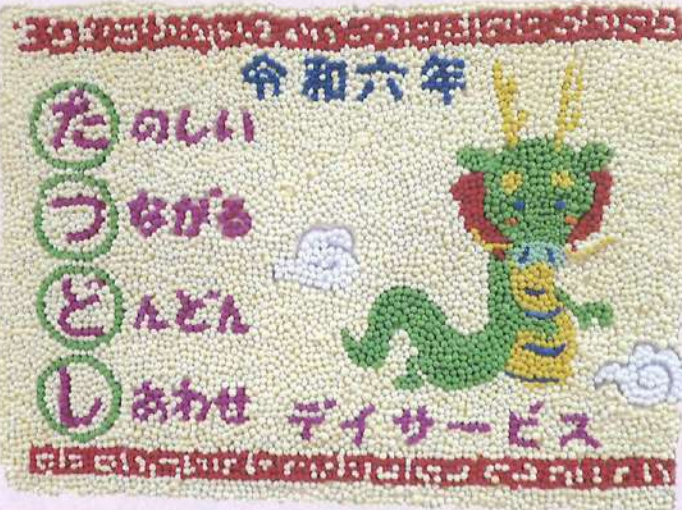 令和六年
たのしい
つながる
どんどん
しあわせ
デイサービス